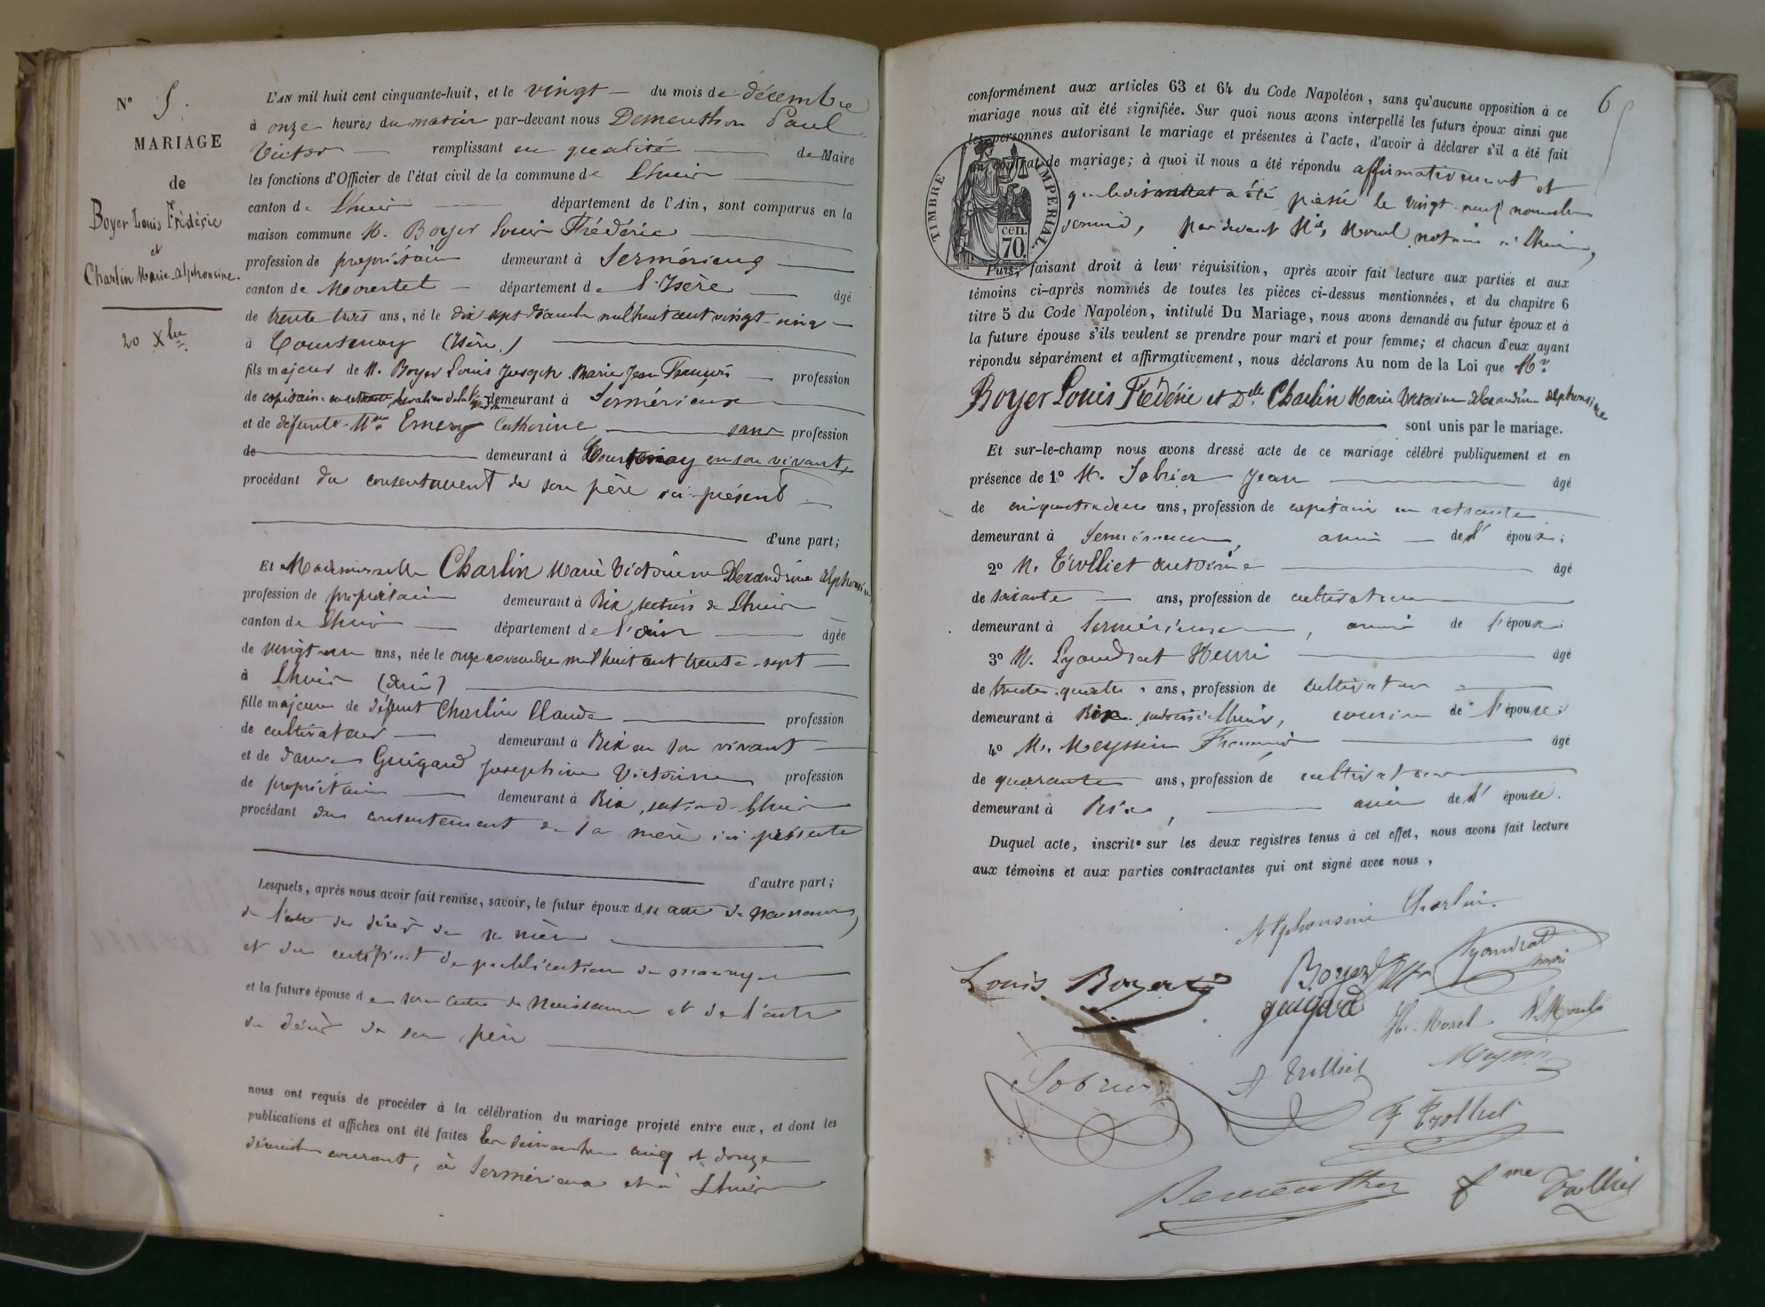 N° 5.
MARIAGE
de
Boyer Louis Frédéric
et
Charlin Marie Alphonsine.
20 Xbre
L'AN mil huit cent cinquante-huit, et le vingt du mois de décembre
à onze heures du matin par-devant nous Demeuthon Paul
Victor remplissant en qualité de Maire
les fonctions d'Officier de l'état civil de la commune de Lhuis
canton de Lhuis département de l'Ain, sont comparus en la
maison commune M. Boyer Louis Frédéric
profession de propriétaire demeurant à Sermérieux
canton de Morestel département de l'Isère âgé
de trente trois ans, né le dix sept mil huit cent vingt-cinq
à Courtenay (Isère)
fils majeur de M. Boyer Louis Joseph Marie Jean François profession
de capitaine en retraite, chevalier de la demeurant à Sermérieux
et de défunte Mme Emery Catherine sans profession
de demeurant à Courtenay en son vivant,
procédant du consentement de son père ici présent
d'une part;
Et Mademoiselle Charlin Marie Victorine Alexandrine Alphonsine
profession de propriétaire demeurant à Rix, section de Lhuis
canton de Lhuis département de l'Ain âgée
de vingt-un ans, née le onze novembre mil huit cent trente-sept
à Lhuis (Ain)
fille majeure de défunt Charlin Claude profession
de cultivateur demeurant à Rix en son vivant
et de dame Guigard Josephine Victorine profession
de propriétaire demeurant à Rix, section de Lhuis
procédant du consentement de sa mère ici présente
d'autre part;
Lesquels, après nous avoir fait remise, savoir, le futur époux de son acte de naissance,
de l'acte de décès de sa mère
et du certificat de publication de mariage
et la future épouse de son acte de naissance et de l'acte
de décès de son père
nous ont requis de procéder à la célébration du mariage projeté entre eux, et dont les
publications et affiches ont été faites les dimanches cinq et douze
décembre courant, à Sermérieux et à Lhuis
6
conformément aux articles 63 et 64 du Code Napoléon, sans qu'aucune opposition à ce
mariage nous ait été signifiée. Sur quoi nous avons interpellé les futurs époux ainsi que
les personnes autorisant le mariage et présentes à l'acte, d'avoir à déclarer s'il a été fait
un contrat de mariage; à quoi il nous a été répondu affirmativement et
que ledit contrat a été passé le vingt-neuf novembre
dernier, par devant Me Morel notaire à Lhuis,
TIMBRE IMPERIAL.
cen.
70.
Puis, faisant droit à leur réquisition, après avoir fait lecture aux parties et aux
témoins ci-après nommés de toutes les pièces ci-dessus mentionnées, et du chapitre 6
titre 5 du Code Napoléon, intitulé Du Mariage, nous avons demandé au futur époux et à
la future épouse s'ils veulent se prendre pour mari et pour femme; et chacun d'eux ayant
répondu séparément et affirmativement, nous déclarons Au nom de la Loi que Mr
Boyer Louis Frédéric et Dlle Charlin Marie Victorine Alexandrine Alphonsine
sont unis par le mariage.
Et sur-le-champ nous avons dressé acte de ce mariage célébré publiquement et en
présence de 1° M. Sobrier Jean âgé
de cinquante-deux ans, profession de capitaine en retraite
demeurant à Sermérieux, ami de l'époux;
2° M. Trolliet Antoine âgé
de soixante ans, profession de cultivateur
demeurant à Sermérieux, ami de l'époux.
3° M. Lyaudrat Henri âgé
de trente-quatre ans, profession de cultivateur
demeurant à Rix section de Lhuis, cousin de l'épouse.
4° M. Meyssin François âgé
de quarante ans, profession de cultivateur
demeurant à Rix, ami de l'épouse.
Duquel acte, inscrit sur les deux registres tenus à cet effet, nous avons fait lecture
aux témoins et aux parties contractantes qui ont signé avec nous,
Alphonsine Charlin.
Louis Boyer
Boyer
Lyaudrat
henri
guigard
Morel
Meyssin
Sobrier
A Trolliet
F Trolliet
Demeuthon
fme Trolliet